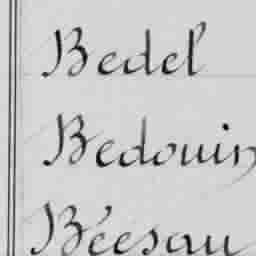 Bedel
Bedouin
Béesau